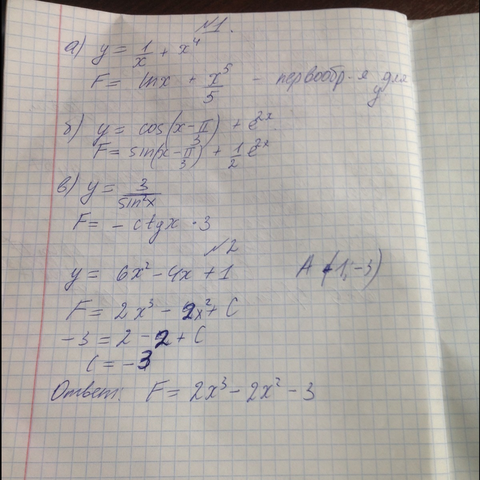 №1.
а) y = 1/x + x⁴
F = lnx + x⁵/5 - первообр-я для y
б) y = cos(x - π/3) + e²ˣ
F = sin(x - π/3) + 1/2 e²ˣ
в) y = 3/sin²x
F = - ctgx · 3
№2
y = 6x² - 4x + 1 A (1; -3)
F = 2x³ - 2x² + C
-3 = 2 - 2 + C
C = -3
Ответ: F = 2x³ - 2x² - 3